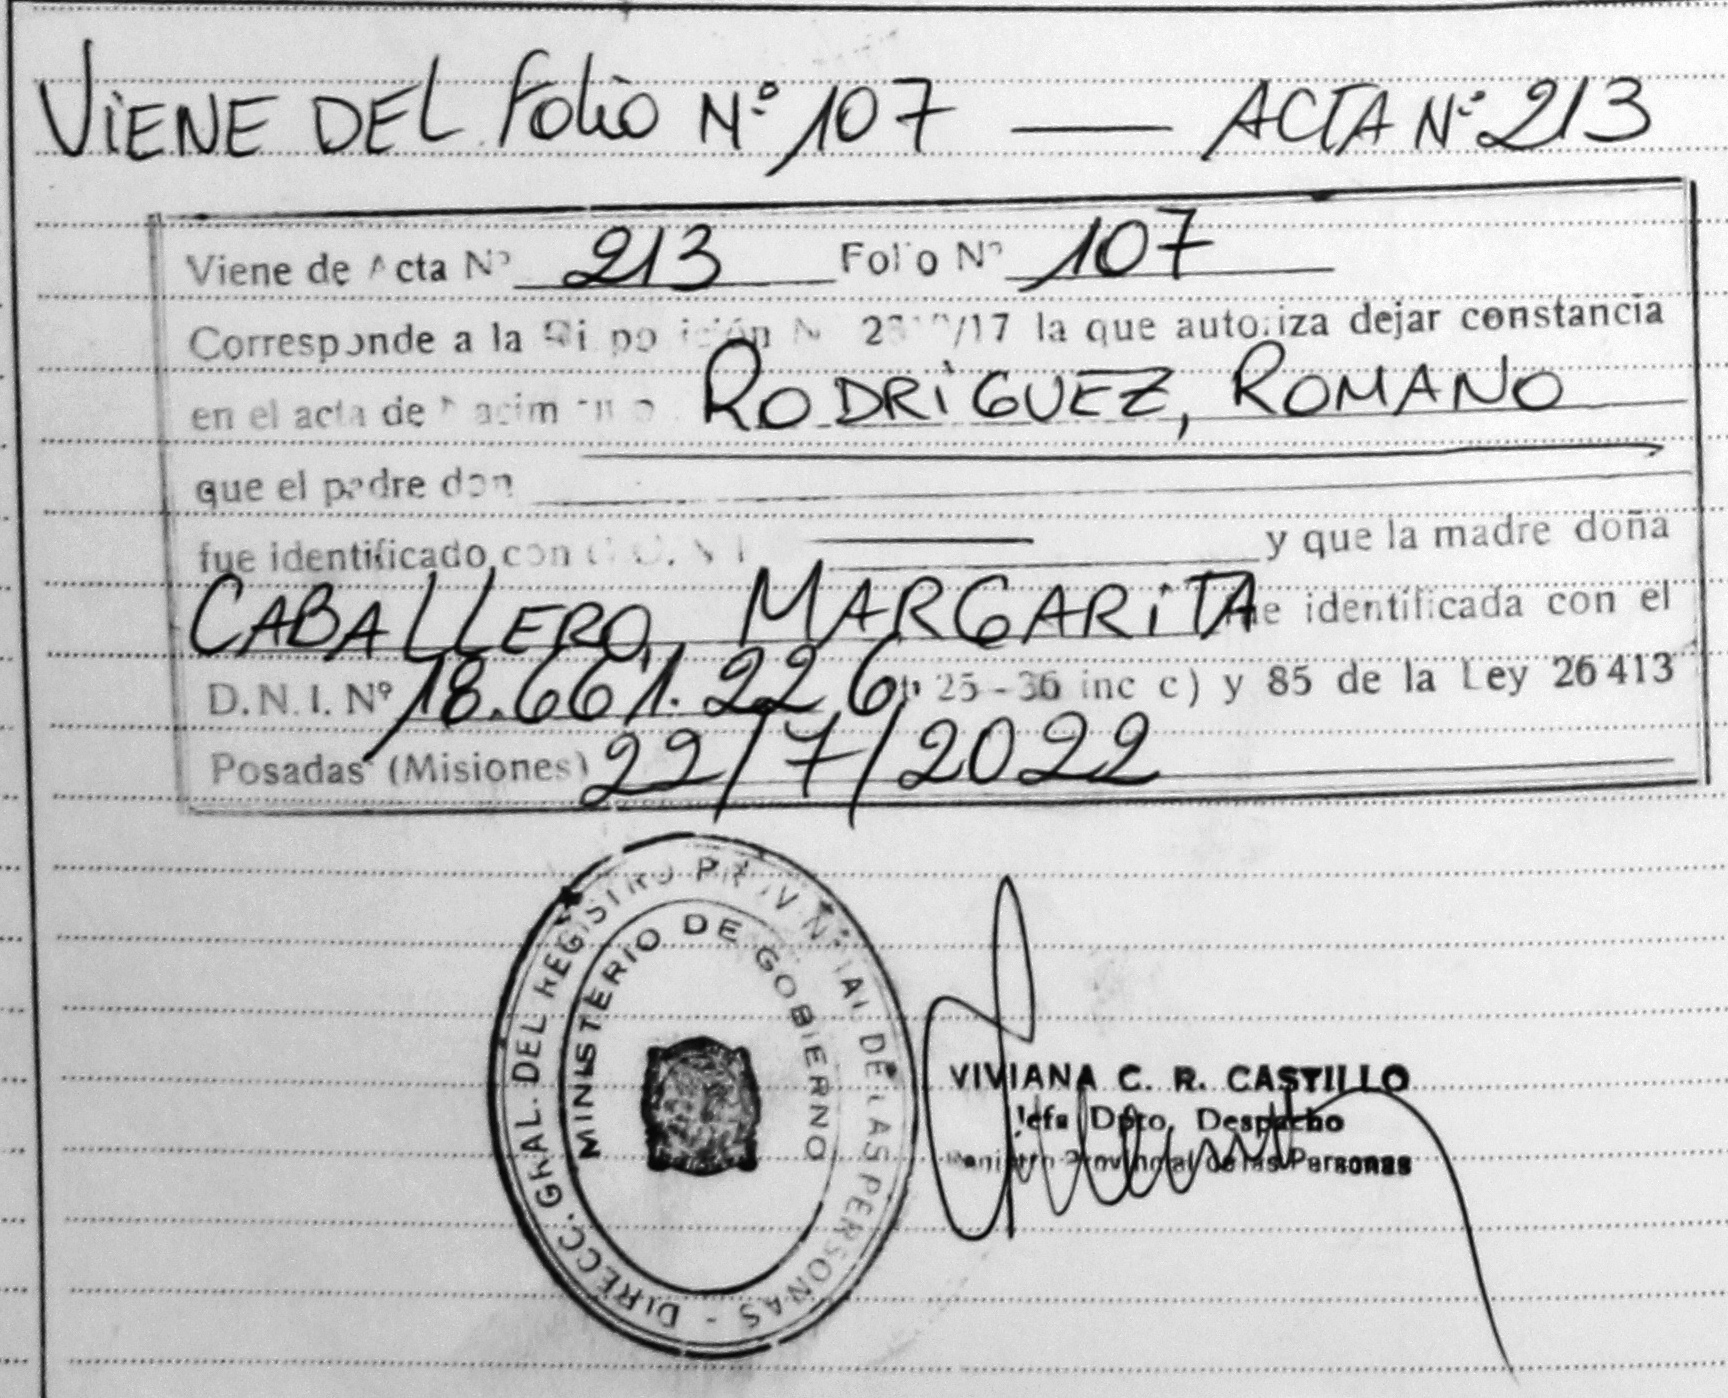 VIENE DEL Folio N° 107 — ACTA N° 213
Viene de Acta N° 213 Folio N° 107
Corresponde a la /17 la que autoriza dejar constancia
en el acta de RODRIGUEZ, ROMANO
que el padre don
fue identificado con y que la madre doña
CABALLERO, MARGARITA identificada con el
D.N.I. N° 18.661.226 25 - 36 inc c) y 85 de la Ley 26413
Posadas (Misiones) 22/7/2022
DIRECC. GRAL. DEL REGISTRO PROVINCIAL DE LAS PERSONAS -
MINISTERIO DE GOBIERNO
VIVIANA C. R. CASTILLO
Jefa Dpto. Despacho
Provincial de las Personas